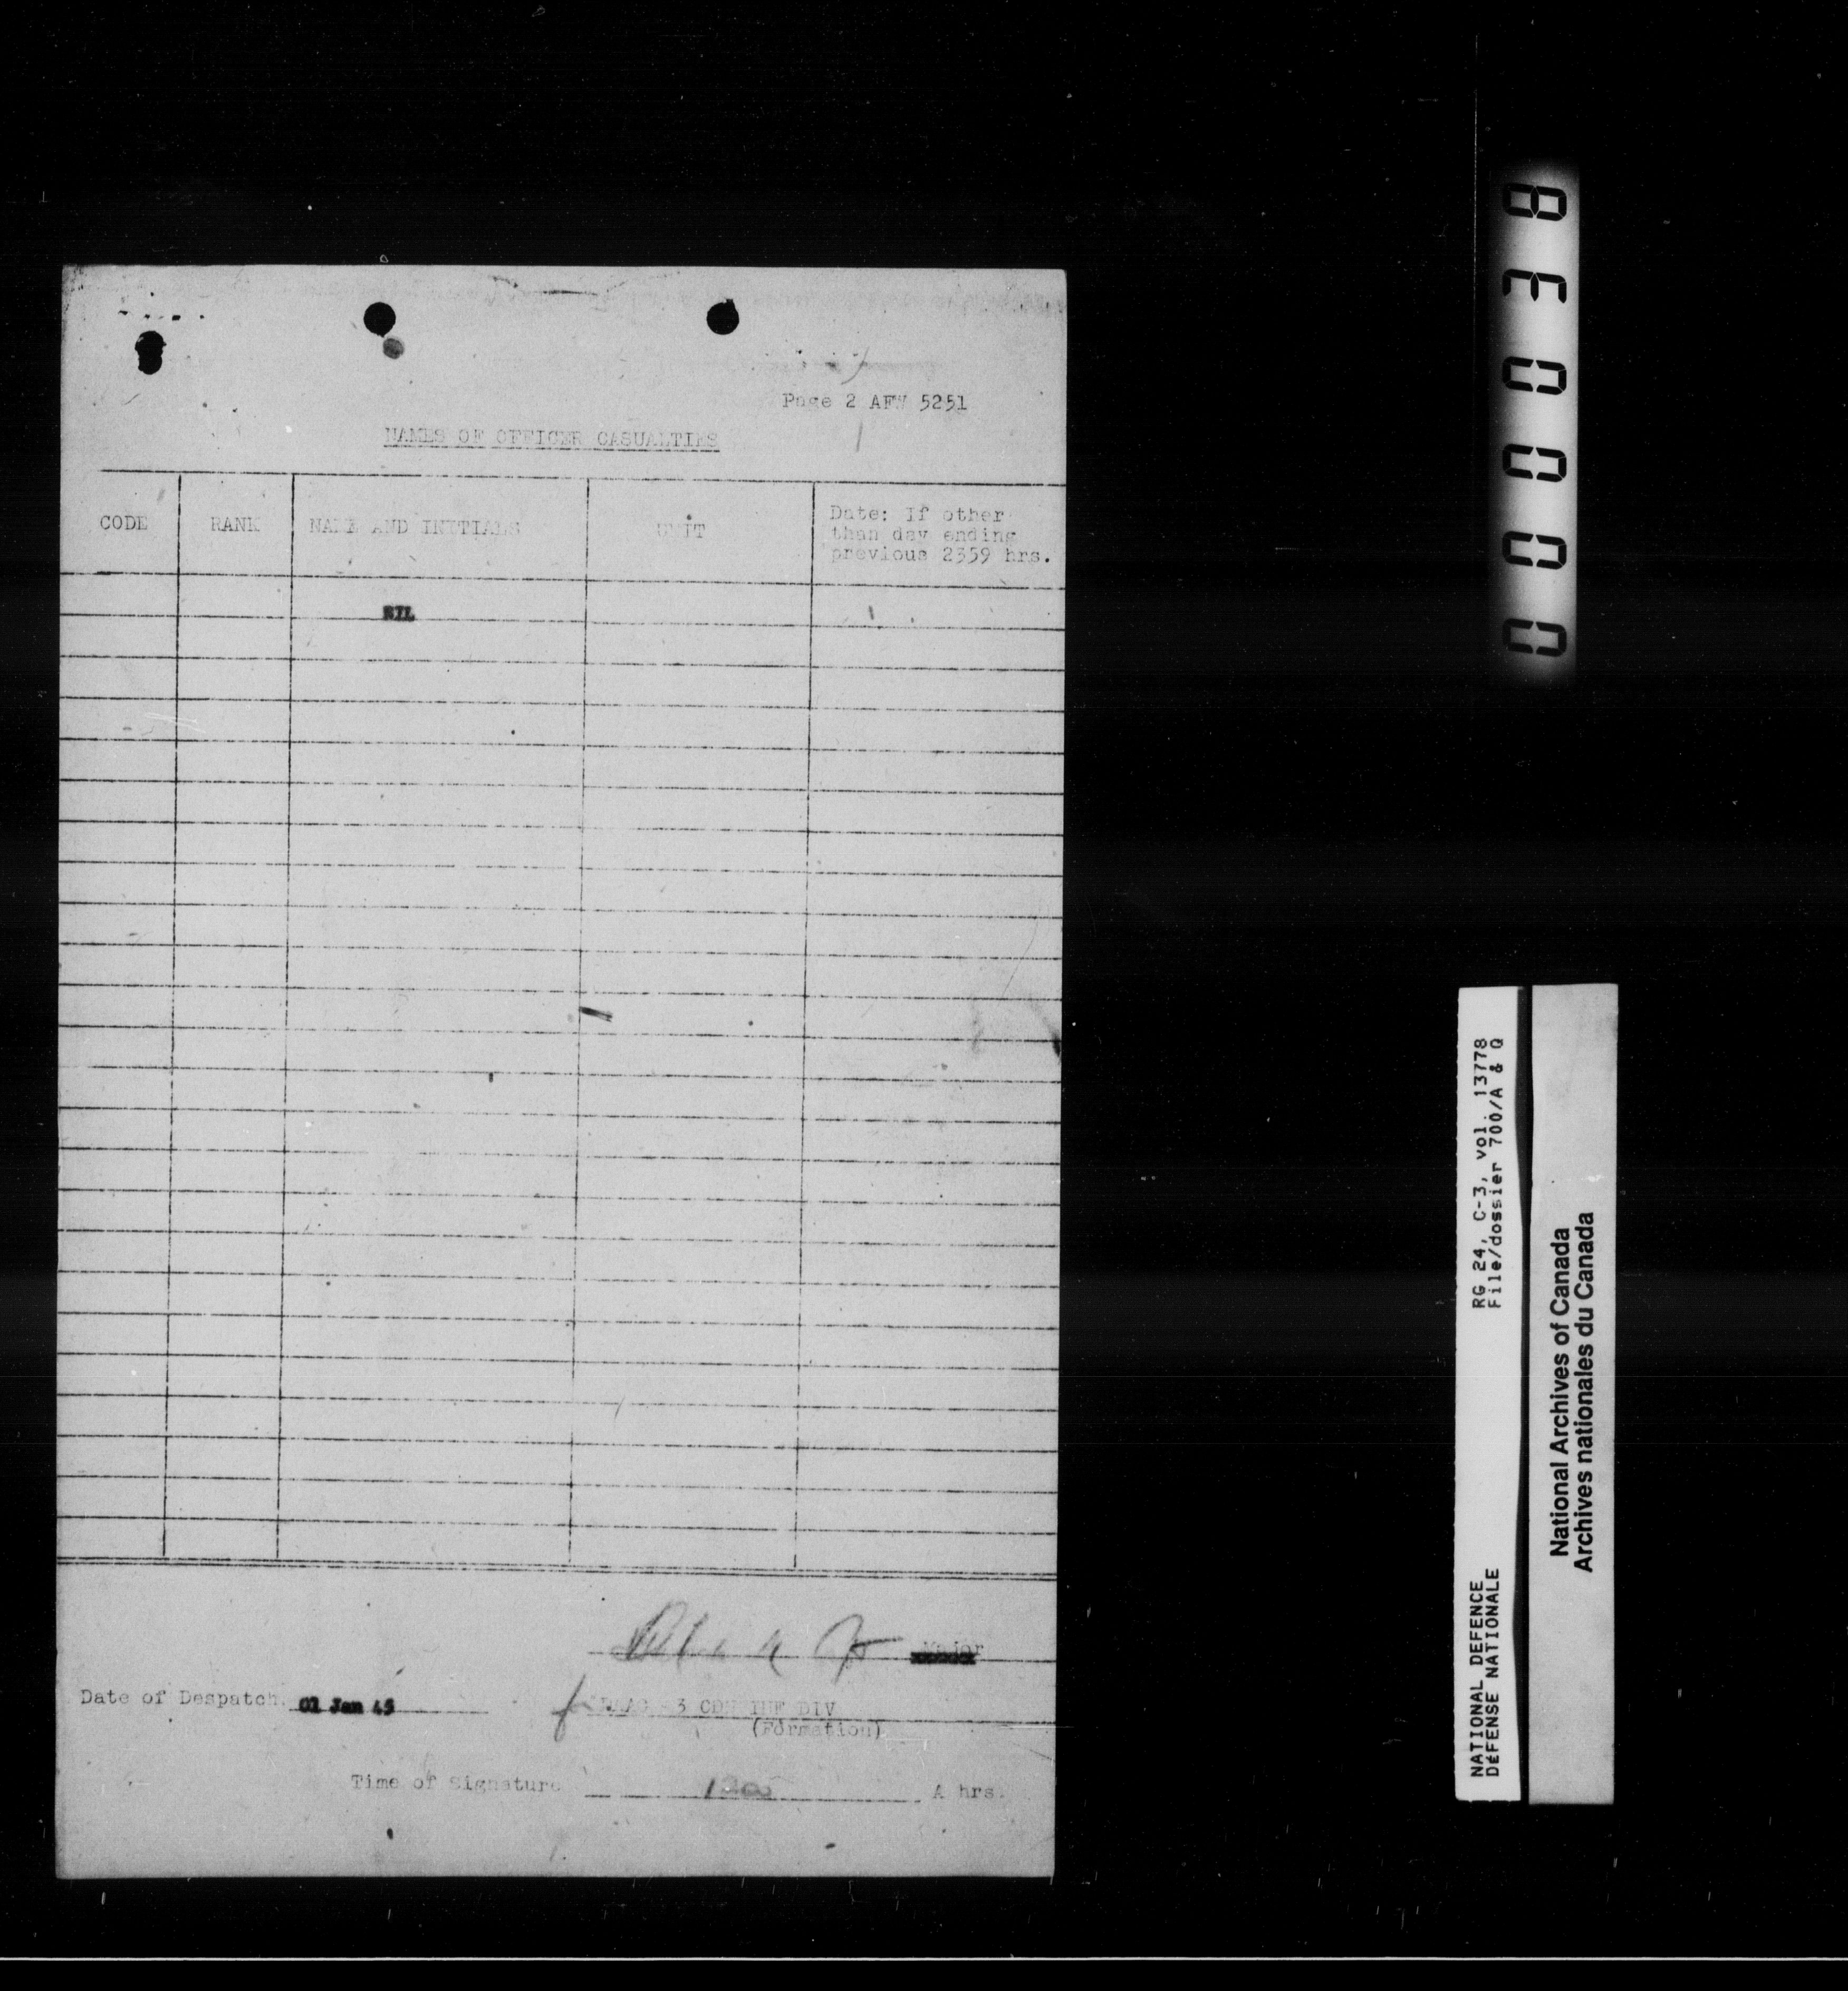 Page 2 AFW 5251
NAMES OF OFFICER CASUALTIES
CODE RANK NAME AND INITIALS UNIT Date: If other than day ending previous 2359 hrs.
NIL
Major
Date of Despatch. 01 Jan 45
3 CDN INF DIV
(Formation)
Time of Signature A hrs.
000038
RG 24, C-3, vol. 13778
File/dossier 700/A & Q
NATIONAL DEFENCE
DÉFENSE NATIONALE
National Archives of Canada
Archives nationales du Canada